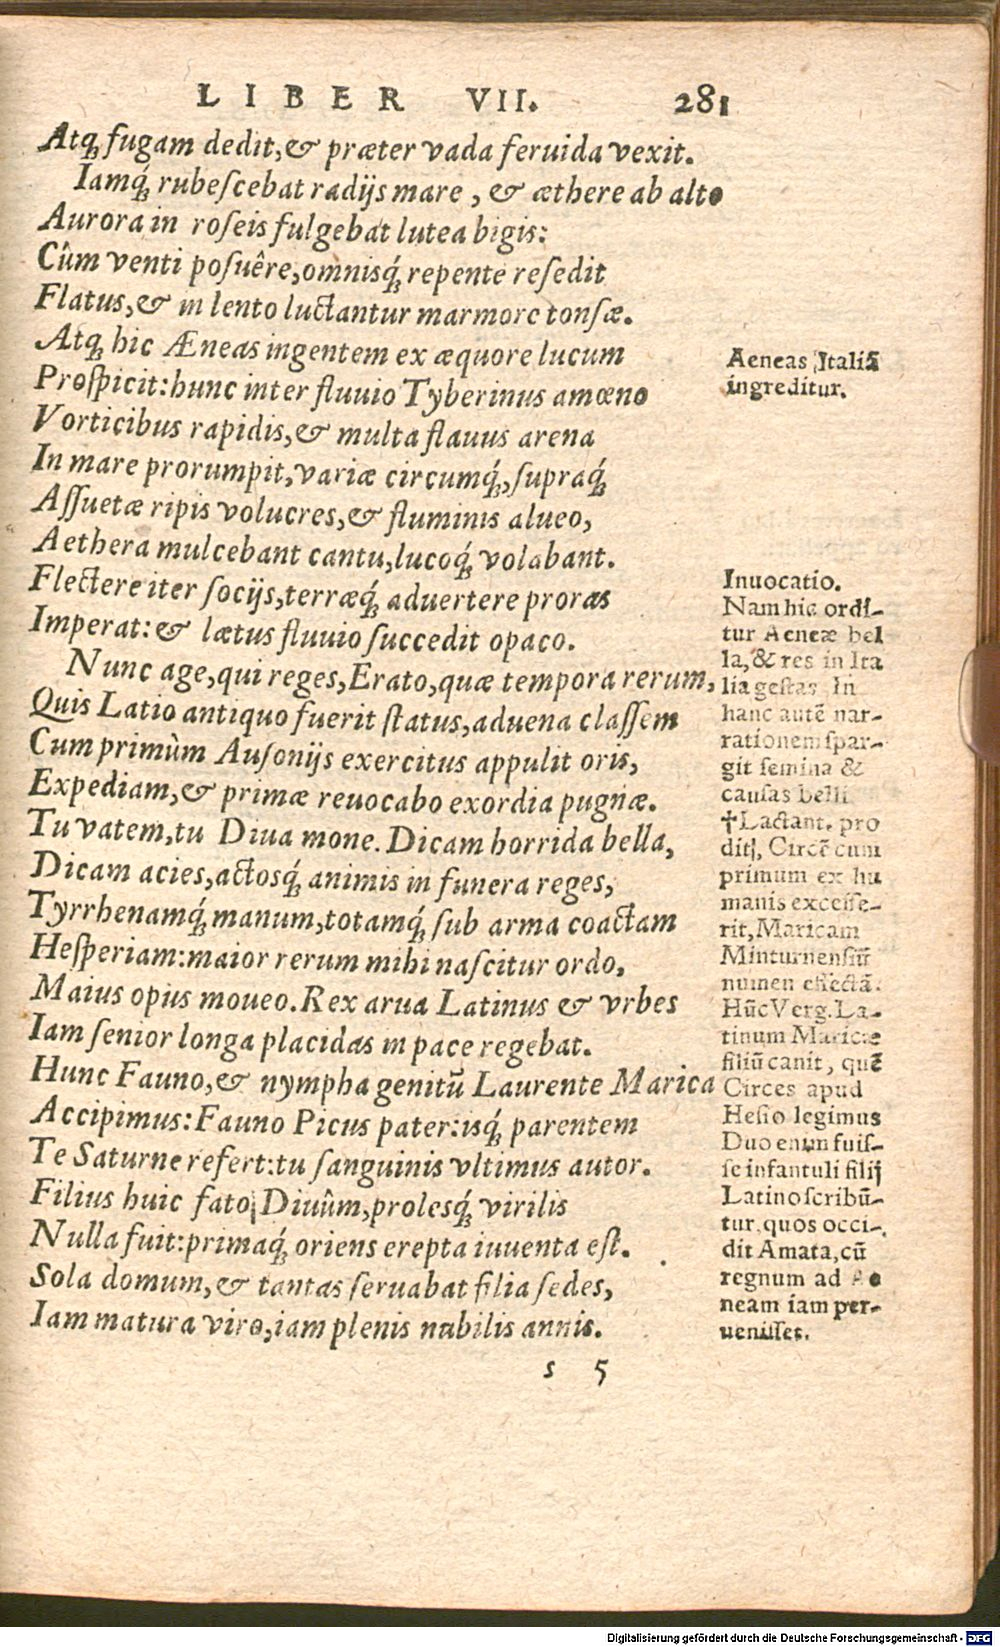 LIBER VII. 281
Atq́; fugam dedit,& præter vada feruida vexit.
Iamq́; rubeſcebat radijs mare, & æthere ab alto
Aurora in roſeis fulgebat lutea bigis:
Cûm venti poſuêre,omnisq́; repente reſedit
Flatus,& in lento luctantur marmore tonſæ.
Atq; hic Æneas ingentem ex æquore lucum
Proſpicit:hunc inter fluuio Tyberinus amœno
Vorticibus rapidis,& multa flauus arena
In mare prorumpit,variæ circumq́;,ſupraq́;
Aſſuetæ ripis volucres,& fluminis alueo,
Aethera mulcebant cantu,lucoq́; volabant.
Flectere iter ſocijs,terræq́; aduertere proras
Imperat:& lætus fluuio ſuccedit opaco.
Nunc age,qui reges,Erato,quæ tempora rerum,
Quis Latio antiquo fuerit ſtatus,aduena claſſem
Cum primùm Auſonijs exercitus appulit oris,
Expediam,& primæ reuocabo exordia pugnæ.
Tu vatem,tu Diua mone. Dicam horrida bella,
Dicam acies,actosq́; animis in funera reges,
Tyrrhenamq́; manum,totamq́; ſub arma coactam
Heſperiam:maior rerum mihi naſcitur ordo,
Maius opus moueo.Rex arua Latinus & vrbes
Iam ſenior longa placidas in pace regebat.
Hunc Fauno,& nympha genitũ Laurente Marica
Accipimus:Fauno Picus pater:isq́; parentem
Te Saturne refert:tu ſanguinis vltimus autor.
Filius huic fato Diuûm,prolesq́; virilis
Nulla fuit:primaq́; oriens erepta iuuenta eſt.
Sola domum,& tantas ſeruabat filia ſedes,
Iam matura viro,iam plenis nubilis annis.
s 5
Aeneas Italiã
ingreditur.
Inuocatio.
Nam hic ordi-
tur Aeneæ bel
la,& res in Ita
lia geſtas In
hanc autẽ nar-
rationem ſpar-
git ſemina &
cauſas belli
†Lactant. pro
dit, Circẽ cum
primum ex hu
manis exceſſe-
rit,Maricam
Minturnenſiũ
numen effectã.
Hũc Verg.La-
tinum Maricæ
filiũ canit, quẽ
Circes apud
Heſio legimus
Duo enim fuiſ-
ſe infantuli filij
Latino ſcribũ-
tur,quos occi-
dit Amata,cũ
regnum ad Ae
neam iam per-
ueniſſet.
Digitalisierung gefördert durch die Deutsche Forschungsgemeinschaft - DFG